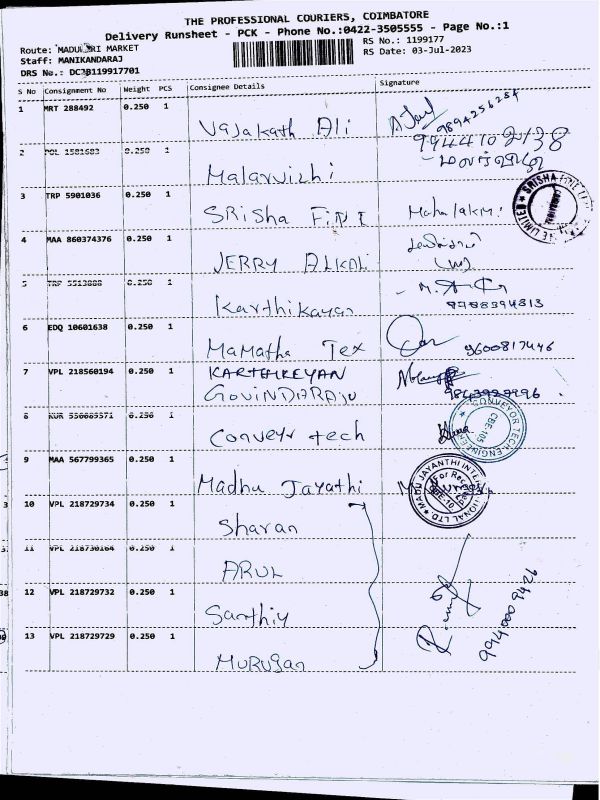 THE PROFESSIONAL COURIERS, COIMBATORE
Delivery Runsheet - PCK - Phone No.:0422-3505555 - Page No.:1
Route: MADUKKRI MARKET
RS No.: 1199177
Staff: MANIKANDARAJ
RS Date: 03-Jul-2023
DRS No.: DC3B119917701
S No Consignment No Weight PCS Consignee Details Signature
1 MRT 288492 0.250 1 Vajakath Ali 9894256254
2 POL 1501603 0.250 1 Malarvizhi 9944102138
3 TRP 5901036 0.250 1 SRisha FiNI Mahalakmi
4 MAA 860374376 0.250 1 JERRY ALKALI
5 TRP 5513888 0.250 1 Karthikayan 8788394813
6 EDQ 10601638 0.250 1 MaMatha Tex 9600817446
7 VPL 218560194 0.250 1 KARTHIKEYAN
GOVINDARAJU
8 KUR 0.250 1 Conveyr tech
CONVEYOR TECH ENGINEERS CBE-105
9 MAA 567799365 0.250 1 Madhu Jayathi
MADU JAYANTHI INTERNATIONAL LTD
10 VPL 218729734 0.250 1 Sharan
11 VPL 218730164 0.250 1 ARUL
12 VPL 218729732 0.250 1 Santhiy 9940009426
13 VPL 218729729 0.250 1 MURUgan